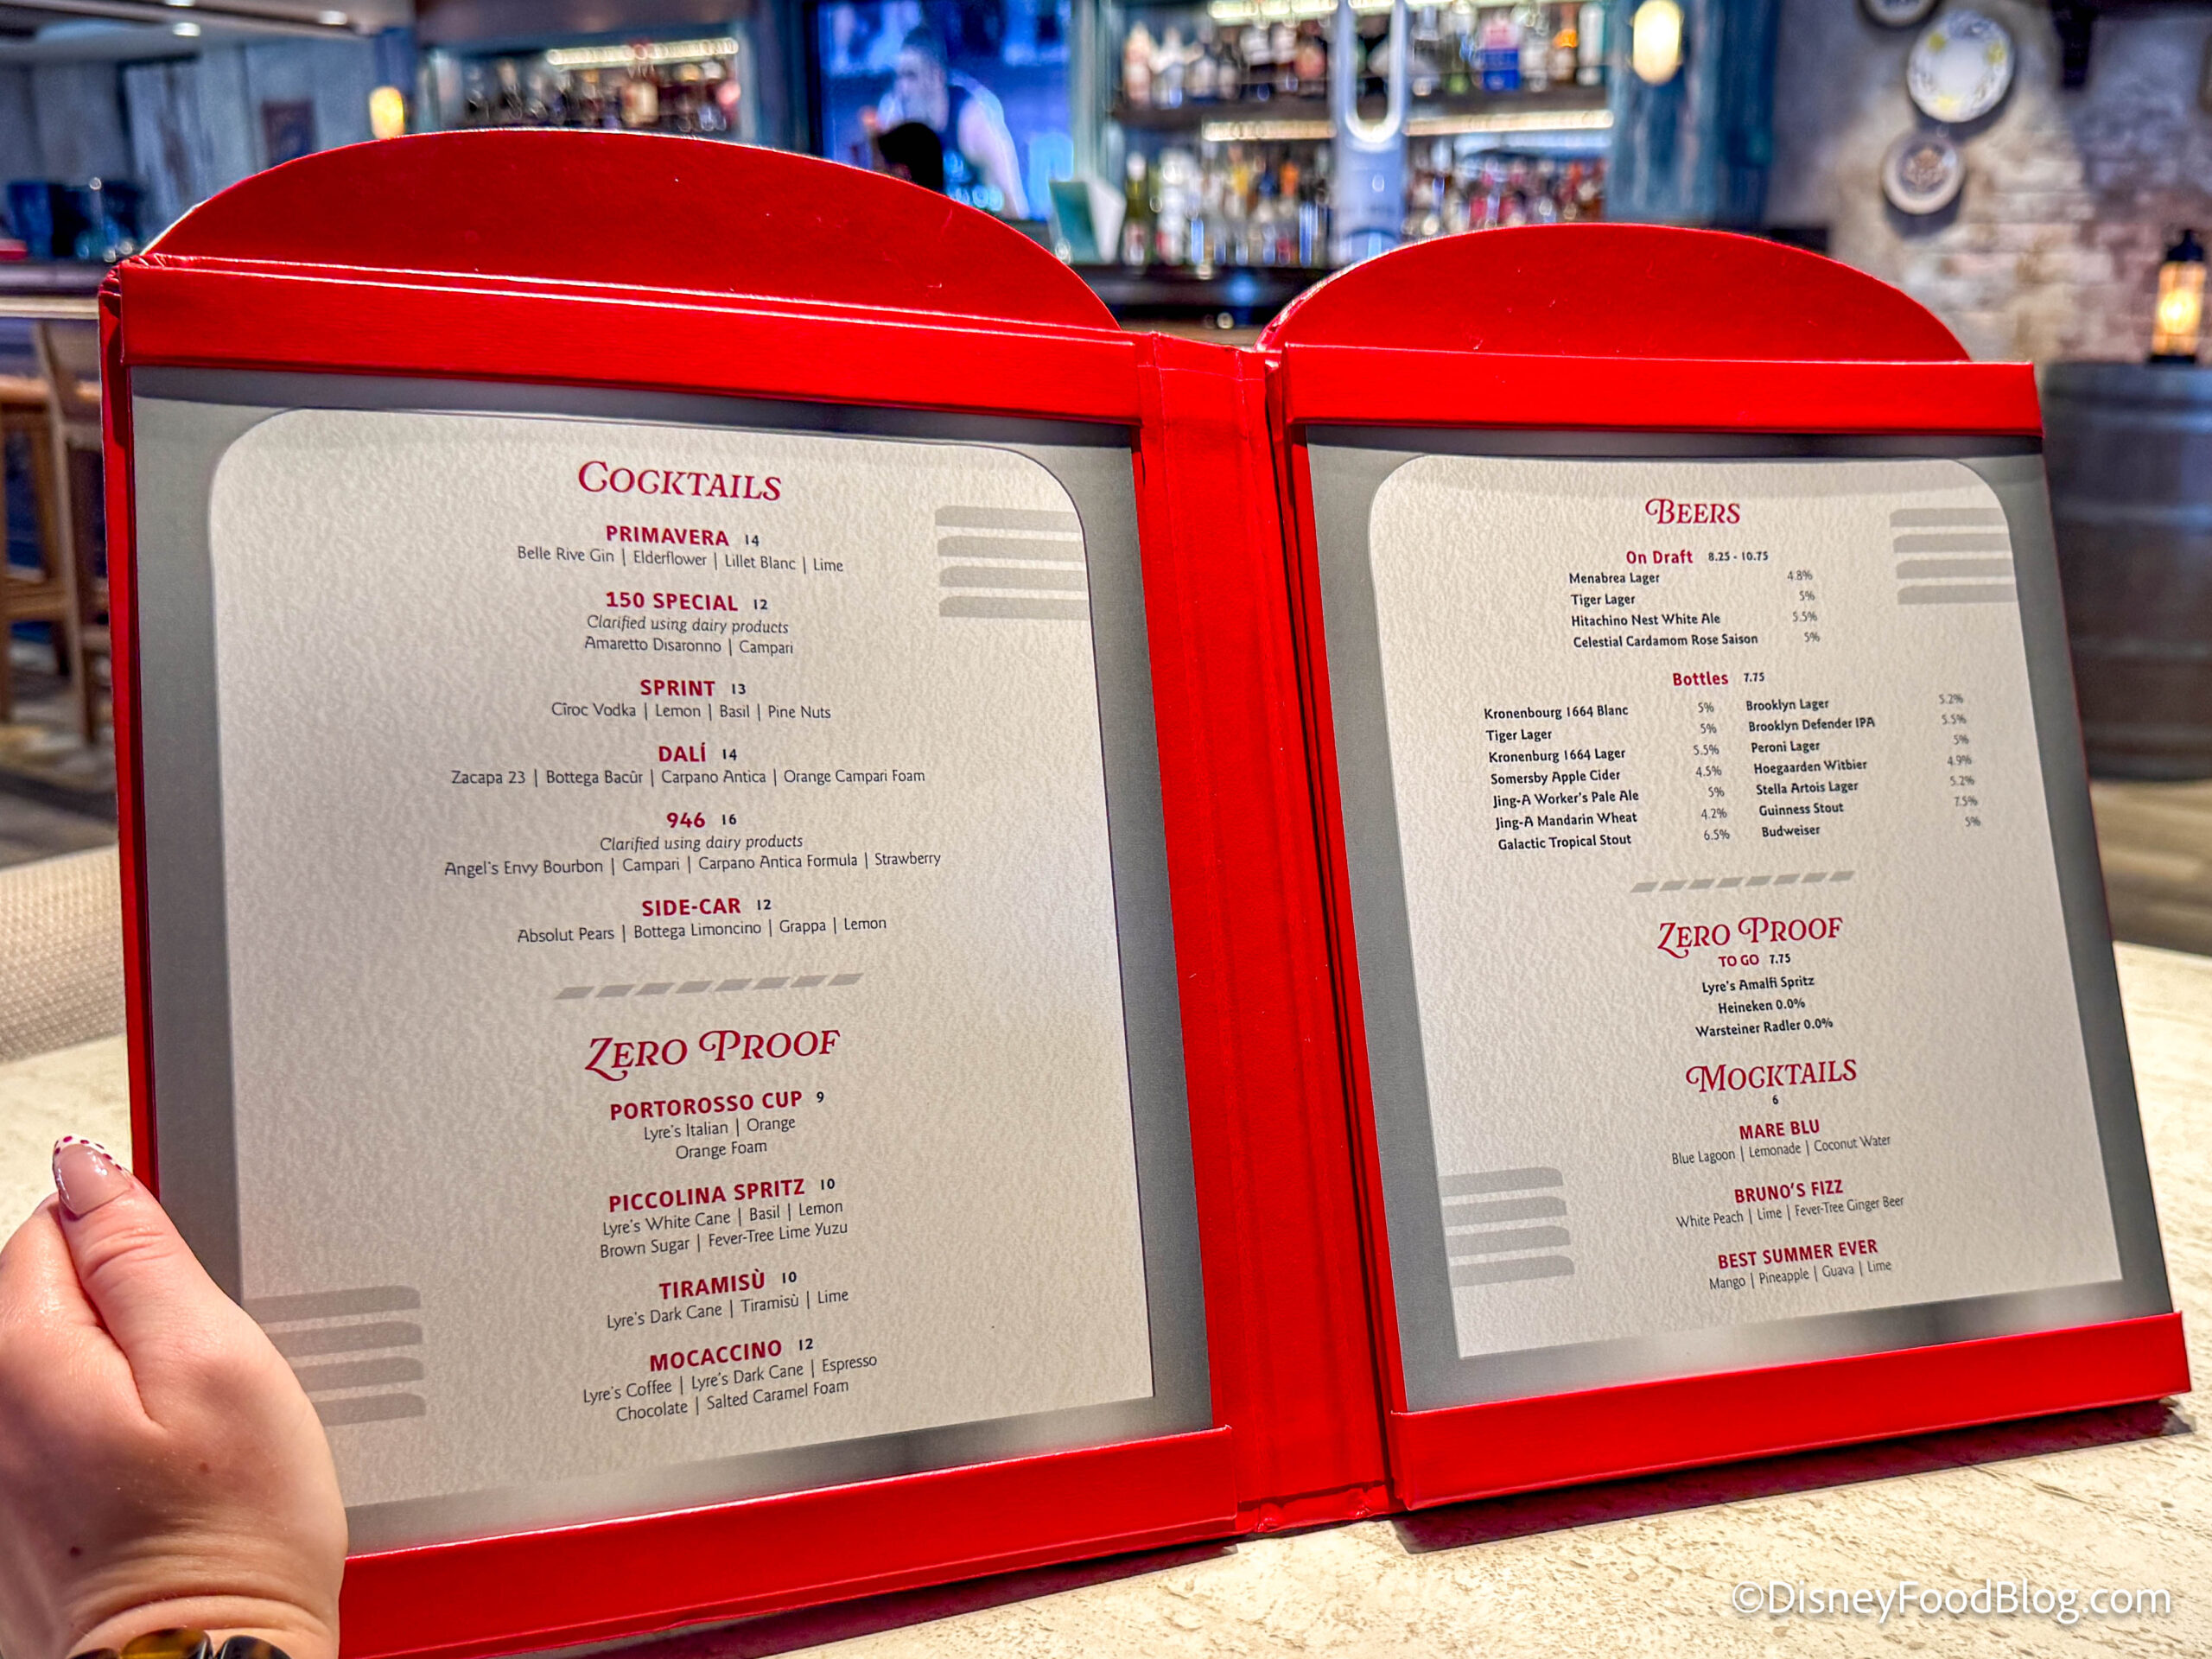 COCKTAILS
PRIMAVERA 14
Belle Rive Gin | Elderflower | Lillet Blanc | Lime
150 SPECIAL 12
Clarified using dairy products
Amaretto Disaronno | Campari
SPRINT 13
Cîroc Vodka | Lemon | Basil | Pine Nuts
DALÍ 14
Zacapa 23 | Bottega Bacûr | Carpano Antica | Orange Campari Foam
946 16
Clarified using dairy products
Angel's Envy Bourbon | Campari | Carpano Antica Formula | Strawberry
SIDE-CAR 12
Absolut Pears | Bottega Limoncino | Grappa | Lemon
ZERO PROOF
PORTOROSSO CUP 9
Lyre's Italian | Orange
Orange Foam
PICCOLINA SPRITZ 10
Lyre's White Cane | Basil | Lemon
Brown Sugar | Fever-Tree Lime Yuzu
TIRAMISÙ 10
Lyre's Dark Cane | Tiramisù | Lime
MOCACCINO 12
Lyre's Coffee | Lyre's Dark Cane | Espresso
Chocolate | Salted Caramel Foam
BEERS
On Draft 8.25 - 10.75
Menabrea Lager 4.8%
Tiger Lager 5%
Hitachino Nest White Ale 5.5%
Celestial Cardamom Rose Saison 5%
Bottles 7.75
Kronenbourg 1664 Blanc 5% Brooklyn Lager 5.2%
Tiger Lager 5% Brooklyn Defender IPA 5.5%
Kronenburg 1664 Lager 5.5% Peroni Lager 5%
Somersby Apple Cider 4.5% Hoegaarden Witbier 4.9%
Jing-A Worker's Pale Ale 5% Stella Artois Lager 5.2%
Jing-A Mandarin Wheat 4.2% Guinness Stout 7.5%
Galactic Tropical Stout 6.5% Budweiser 5%
ZERO PROOF
TO GO 7.75
Lyre's Amalfi Spritz
Heineken 0.0%
Warsteiner Radler 0.0%
MOCKTAILS
6
MARE BLU
Blue Lagoon | Lemonade | Coconut Water
BRUNO'S FIZZ
White Peach | Lime | Fever-Tree Ginger Beer
BEST SUMMER EVER
Mango | Pineapple | Guava | Lime
©DisneyFoodBlog.com